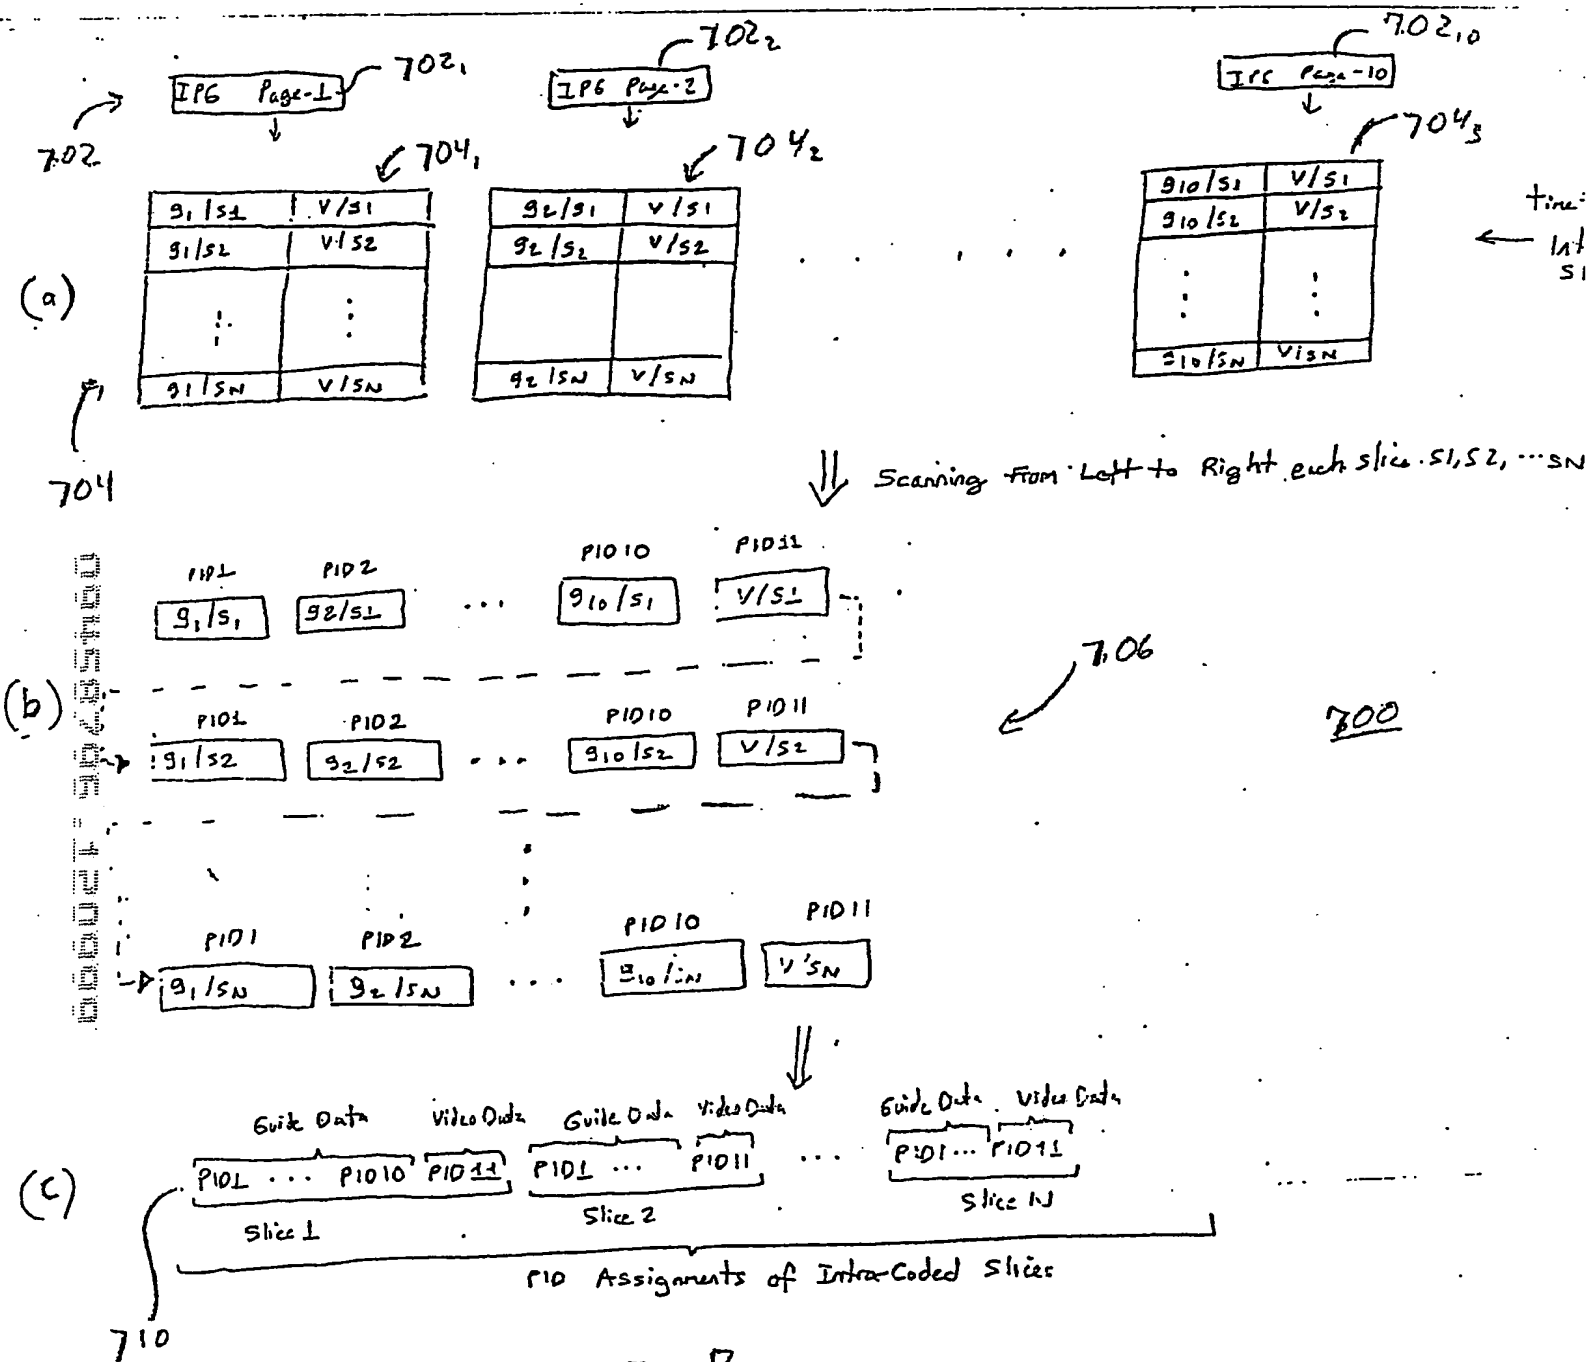 702₁
702₂
702₁₀
IPG Page-1
IPG Page-2
IPG Page-10
702
704₁
704₂
704₃
g1/s1 V/s1
g2/s1 V/s1
g10/s1 V/s1
time=
g1/s2 V/s2
g2/s2 V/s2
g10/s2 V/s2
(a)
g1/sN V/sN
g2/sN V/sN
g10/sN V/sN
704
Scanning From Left to Right each slice s1, s2, ... sN
PID1 PID2 PID10 PID11
g1/s1 g2/s1 ... g10/s1 V/s1
706
(b)
700
PID1 PID2 PID10 PID11
g1/s2 g2/s2 ... g10/s2 V/s2
PID1 PID2 PID10 PID11
g1/sN g2/sN ... g10/sN V/sN
Guide Data Video Data Guide Data Video Data Guide Data Video Data
(c)
PID1 ... PID10 PID11 PID1 ... PID11 ... PID1 ... PID11
Slice 1 Slice 2 Slice N
PID Assignments of Intra-Coded Slices
710